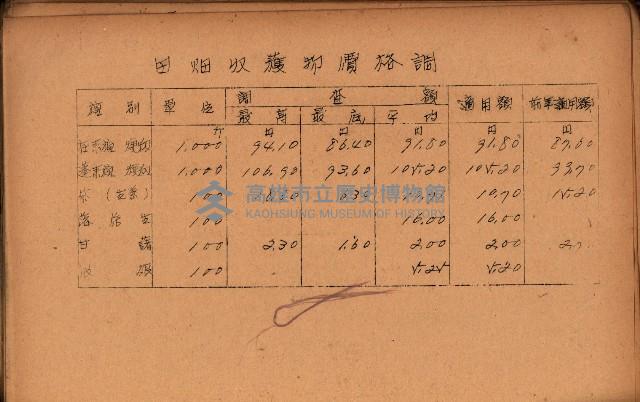 田畑收獲物價格調
種別 單位 調查額 適用額 前年適用額
最高 最底 平均
斤 円 円 円 円 円
在來種 籾 1,000 94.10 86.40 91.80 91.80 87.60
蓬萊種 籾 1,000 106.90 93.60 105.20 105.20
茶 100 10.70 15.20
落花生 100 16.00 16.00
甘藷 100 2.30 1.60 2.00 2.00
100 5.25 5.20
高雄市立歷史博物館
KAOHSIUNG MUSEUM OF HISTORY